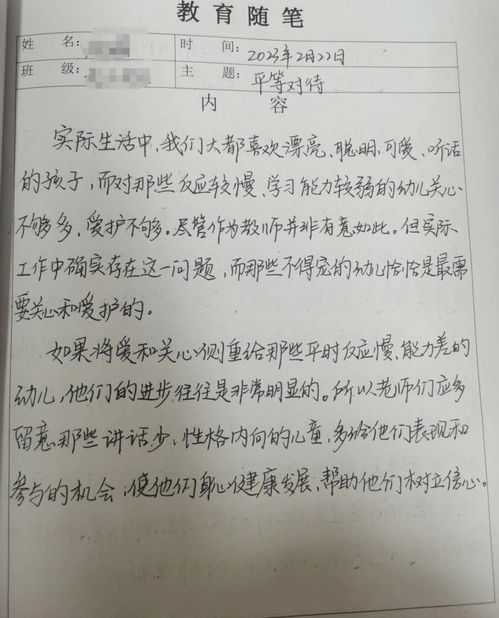 教育随笔
姓 名: 时 间: 2023年2月22日
班 级: 主 题: 平等对待
内 容
实际生活中,我们大都喜欢漂亮、聪明、可爱、听话
的孩子,而对那些反应较慢、学习能力较弱的幼儿关心
不够多,爱护不够多。尽管作为教师并非有意如此。但实际
工作中确实存在这一问题,而那些不得宠的幼儿恰恰是最需
要关心和爱护的。
如果将爱和关心侧重给那些平时反应慢、能力差的
幼儿,他们的进步往往是非常明显的。所以老师们应多
留意那些讲话少,性格内向的儿童,多给他们表现和
参与的机会,使他们身心健康发展、帮助他们树立信心。